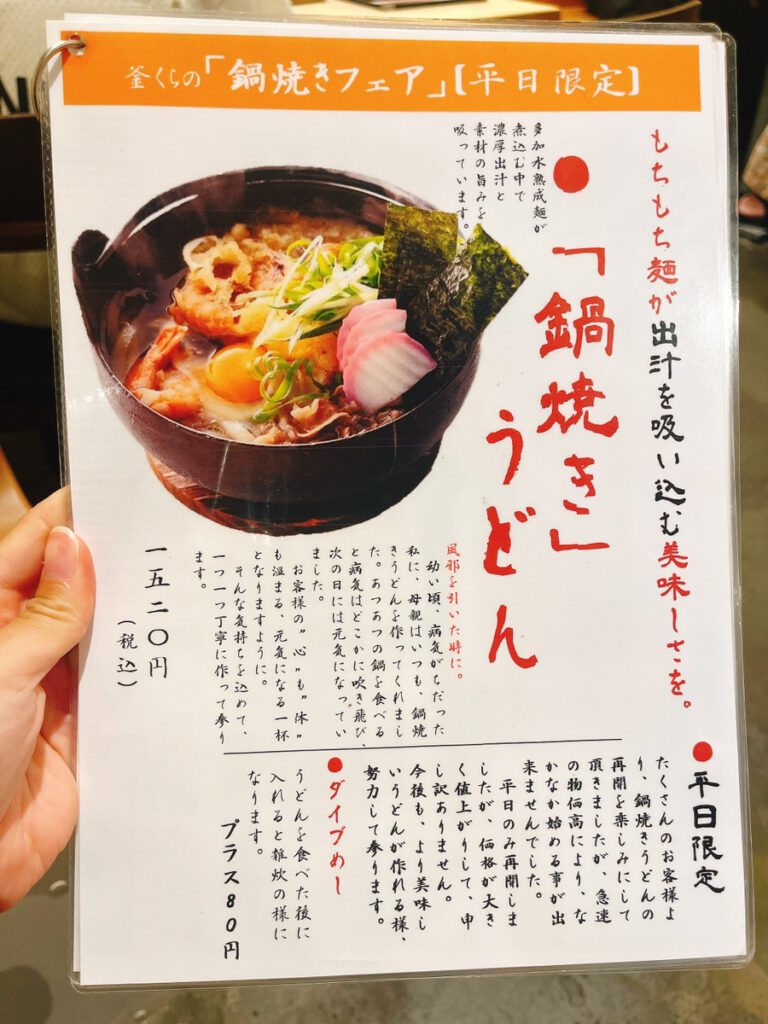 釜くらの「鍋焼きフェア」【平日限定】
もちもち麺が出汁を吸い込む美味しさを。
●「鍋焼き」
うどん
多加水熟成麺が
煮込む中で
濃厚出汁と
素材の旨みを
吸っています。
風邪を引いた時に。
幼い頃、病気がちだった
私に、母親はいつも、鍋焼
きうどんを作ってくれまし
た。あつあつの鍋を食べる
と病気はどこかに吹き飛び、
次の日には元気になってい
ました。
お客様の"心"も"体"
も温まる、元気になる一杯
となりますように。
そんな気持ちを込めて、
一つ一つ丁寧に作って参り
ます。
一五二〇円
（税込）
●平日限定
たくさんのお客様よ
り、鍋焼きうどんの
再開を楽しみにして
頂きましたが、急速
の物価高により、な
かなか始める事が出
来ませんでした。
平日のみ再開しま
したが、価格が大き
く値上がりして、申
し訳ありません。
今後も、より美味し
いうどんが作れる様、
努力して参ります。
●ダイブめし
うどんを食べた後に
入れると雑炊の様に
なります。
プラス80円